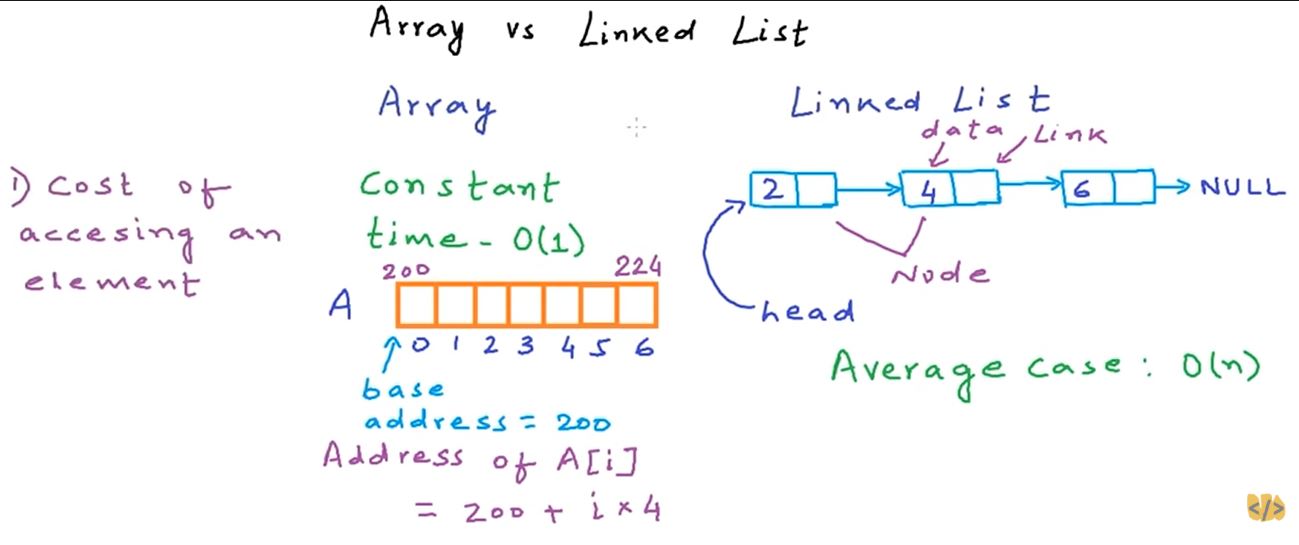 Array vs Linked List
Array
Linked List
data
Link
1) Cost of
accesing an
element
Constant
time - O(1)
200
224
A
0 1 2 3 4 5 6
base
address = 200
Address of A[i]
= 200 + i × 4
2
4
6
NULL
Node
head
Average case : O(n)
</>